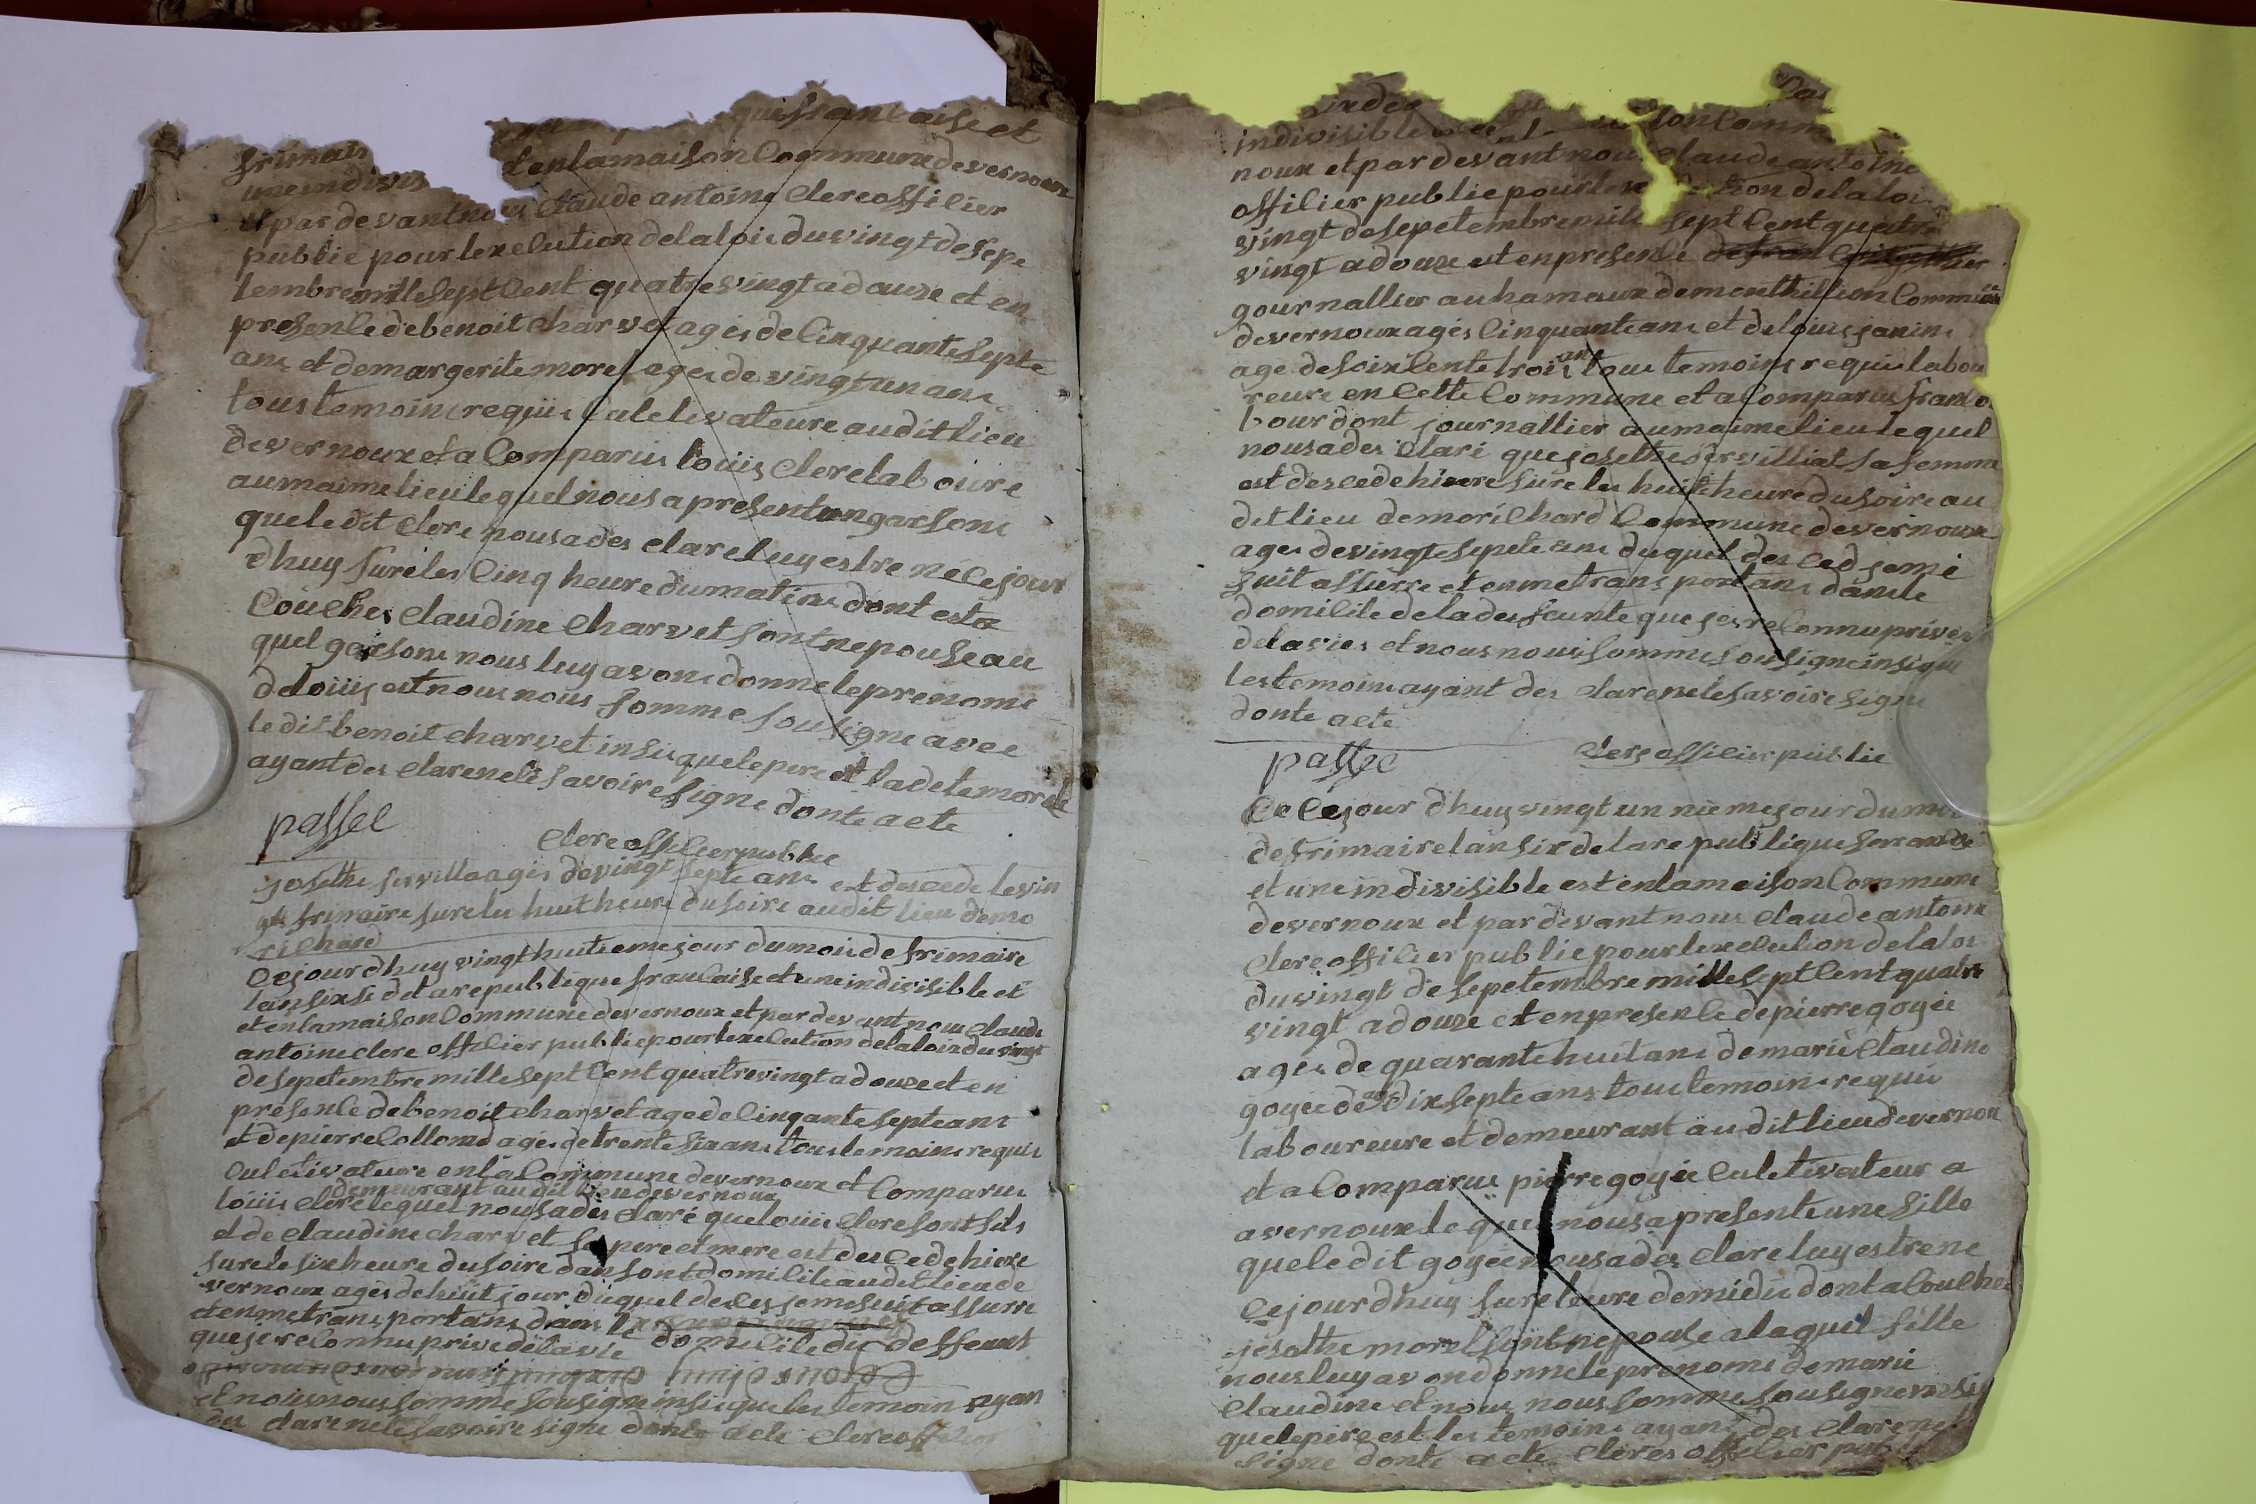 qui francaise et
frimair
une indivis et en la maison Commune de vernoux
et par devant nous Claude antoine Clere offilier
publie pour lexelution de la loi du vingt de sepe
tembre mille sept Cent quatre vingt a douze et en
presenle de benoit Charvet agés de Cinquante septe
ans et de margerite morel ages de vingt un ans
tous temoins requis Culetivateure au dit lieu
de vernoux et a Comparus loüis Clere laboure
au maime lieu lequel nous a present un garsons
que le dit Clere nous a des Clare luy estre ne le jour
dhuy sure les Cinq heure du matins dont esta
Couches Claudine Charvet sont nepouse au
quel garsons nous luy avons donne le prenoms
de loüis est nous nous somme sousigne avec
le dit benoit Charvet insi que le pere et la dete morele
ayant des Clare ne les savoire signe donte acte
passee
Clere offilier publie
josethe servilla agés de vingt septe ans est decede le vin
gt frimaire sure les huit heure du soire au dit lieu demo
richard
Ce jour dhuy vingt huitieme jour du mois de frimaire
lan sixse de la republique francaise et une indivisible et
et en la maison Commune de vernoux et par devant nous Claude
antoine clere offilier publie pour lexelution de la loix du vingt
de sepetembre mille sept Cent quatre vingt a douze et en
presenle de benoit Charvet age de Cinqante septe ans
et de pierre Collomd ages de trente six ans tous temoins requis
Culetivateure en la Commune de vernoux et Comparus
demeurant au dit lieu de vernoux
loüis Clere lequel nous a des Claré que loüis Clere sont fils
et de Claudine Charvet se pere et mere est decede hiere
sure le six heure du soire dan sont domilile au dit lieu de
vernoux agés de huit jour duquel deces je me suit assurre
et en me trans portans dans le domilile du deffeunt
que je reconnu prive de la vie
et nous nous somme sousigne insi que les temoin ayan
des Clare ne les savoire signe donte acte Clere
indivisible Comm
noux et par devant nous Claude antoine
offilier publie pour lexelution de la loi
vingt de sepetembre mile sept Cent quatre
vingt a douze et en presenle
gournallier au hameaux de monthillion Commune
de vernoux agés Cinquante ans et de loüis janin
age de soixCente trois ans tous temoins requis labou
reure en Cette Commune et a Comparus franco
bourdont journallier au maime lieu lequel
nous a des Claré que josethe servilliat sa femme
est descede hiere sure les huite heure du soire au
dit lieu de morichard Commune de vernoux
ages de vingt sepete ans duquel desced je me
suit assurre et en me trans portans dans le
domilile de la deffeunte que je reconnu prive
de la vies et nous nous somme sousigne insi que
les temoins ayant des Clare ne les savoire signe
donte acte
passee Clere offilier publie
Ce jour dhuy vingt un nieme jour du mois
de frimaire lan six de la republique
et une indivisible est en la maison Commune
de vernoux et par devant nous Claude antoine
Clere offilier publie pour lexelution de la loi
du vingt de sepetembre mille sept Cent quatre
vingt a douze et en presenle de pierre goyée
agés de quarante huit ans de marie Claudine
goyée de dix septe ans tous temoins requis
laboureure et demeurant au dit lieu de vernou
et a Comparus pierre goyée Culetivateur a
a vernoux lequel nous a presente une fille
que le dit goyée nous a des Clare luy estre ne
Ce jour dhuy sure leure de midi dont a Couches
josethe morel sont nepouse a laquel fille
nous luy avon donne le prenoms de marie
Claudine et nous nous somme sousigne insi
que le pere est les temoins ayant des Clare ne
signe donte acte Cleres offilier pub